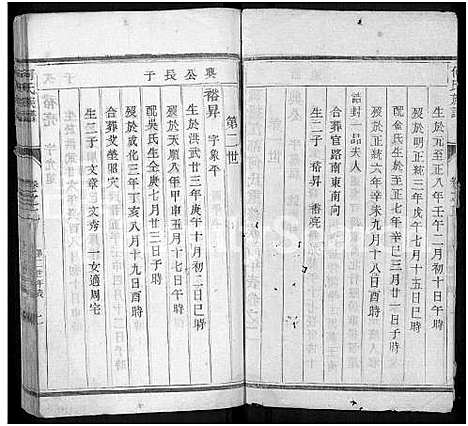 何氏族譜
生於元至正八年壬午二月初二日午時
歿於明正統三年戊午七月十五日巳時
配金氏生於至正七年辛巳三月廿一日子時
歿於正統六年辛未九月十八日酉時
誥封二品夫人
合葬官路南東南向
生二子 裕昇 裕亮
第二世
襄公長子
裕昇 字象平
生於洪武廿三年庚午十月初二日巳時
歿於天順八年甲申五月十七日午時
配吳氏生仝庚七月廿三日子時
歿於成化三年丁亥八月十九日酉時
合葬艾坐昭穴
生二子 文章 文秀 一女適周宅
何氏族譜